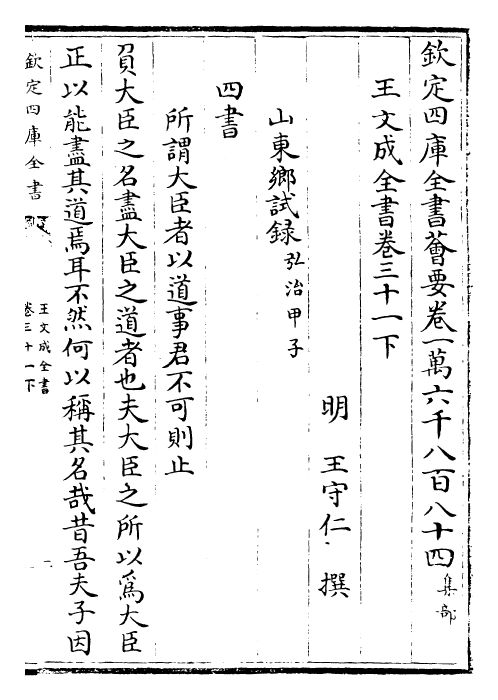 欽定四庫全書薈要卷一萬六千八百八十四集部
王文成全書卷三十一下
明王守仁撰
山東鄉試錄弘治甲子
四書
所謂大臣者以道事君不可則止
負大臣之名盡大臣之道者也夫大臣之所以爲大臣
正以能盡其道焉耳不然何以稱其名哉昔吾夫子因
欽定四庫全書
王文成全書
卷三十一下
一